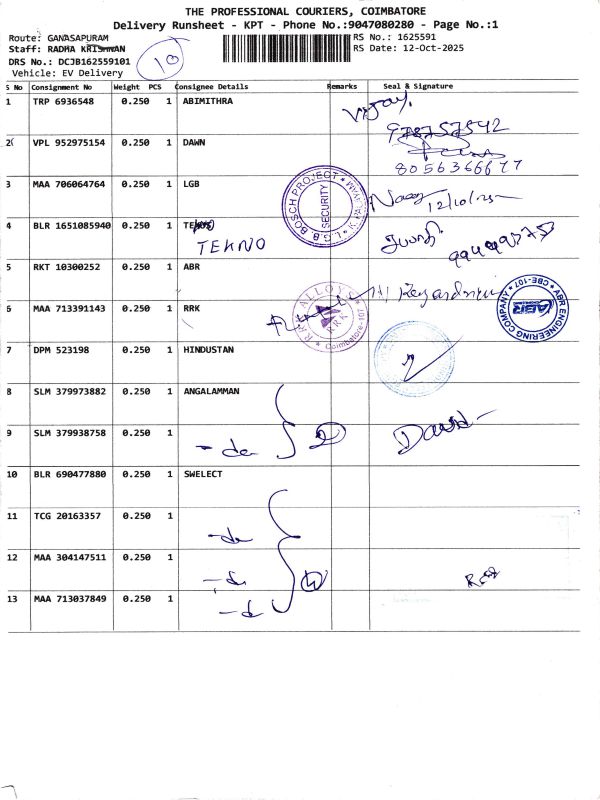 THE PROFESSIONAL COURIERS, COIMBATORE
Delivery Runsheet - KPT - Phone No.:9047080280 - Page No.:1
Route: GANASAPURAM
Staff: RADHA KRISHNAN
DRS No.: DCJB162559101
Vehicle: EV Delivery
10
RS No.: 1625591
RS Date: 12-Oct-2025
S No Consignment No Weight PCS Consignee Details Remarks Seal & Signature
1 TRP 6936548 0.250 1 ABIMITHRA
Vijay.
978757542
2 VPL 952975154 0.250 1 DAWN
8056366677
3 MAA 706064764 0.250 1 LGB
L.G.B. BOSCH PROJECT
SECURITY
12/10/25
4 BLR 1651085940 0.250 1
TEKNO
5 RKT 10300252 0.250 1 ABR
ABR ENGINEERING COMPANY * CBE-107 *
ABR
6 MAA 713391143 0.250 1 RRK
Coimbatore-107
7 DPM 523198 0.250 1 HINDUSTAN
8 SLM 379973882 0.250 1 ANGALAMMAN
9 SLM 379938758 0.250 1
-do 2
10 BLR 690477880 0.250 1 SWELECT
11 TCG 20163357 0.250 1
-do
12 MAA 304147511 0.250 1
-do 4
13 MAA 713037849 0.250 1
-do